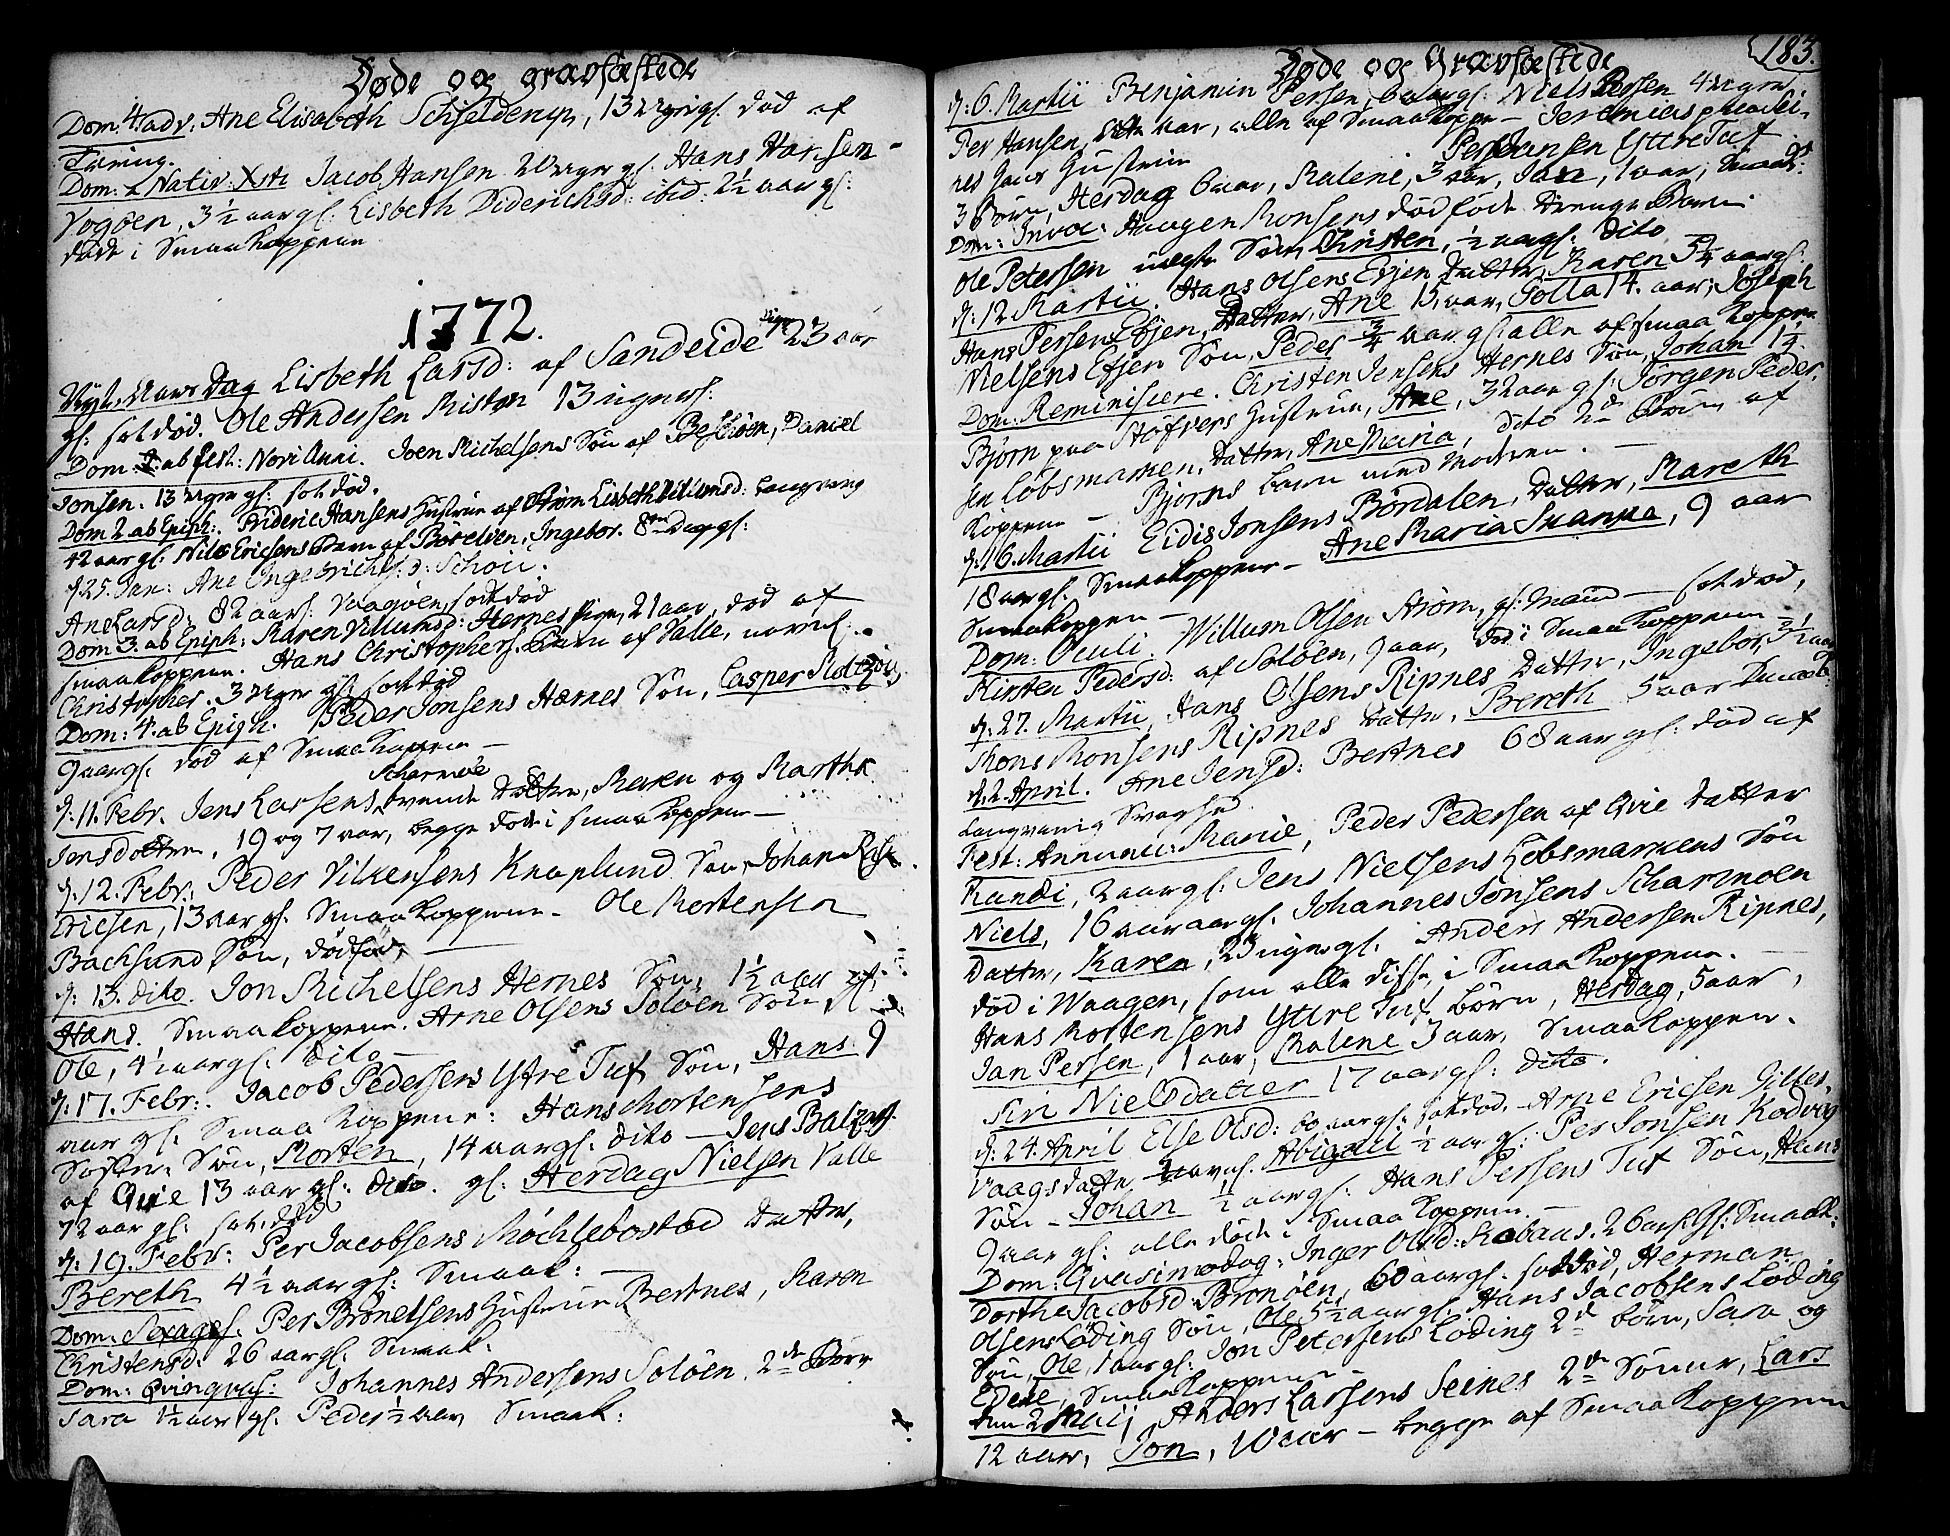 Døde og gravfæstede
Dom: 4. adv: Ane Elisabeth Schjelderup, 13 uger gl: død af
Tæring.
Dom: Nativ: Xsti Jacob Hansen 20 uger gl: Hans Hansen
Vogøen, 3 1/2 aar gl: Lisbeth Diderichsd: ibid: 2 1/2 aar gl:
døde i Smaakoppene
1772.
Nyt Aars Dag Lisbeth Larsd: af Sandeide 23 aar
gl: sotdød. Ole Andersen 13 uger gl:
Dom: ab fest: Novi Anni. Joen Michelsens Søn af, Daniel
Jonsen. 13 uger gl: sotdød.
Dom 2 ab Epiph: Frideric Hansens Hustrue af Strøm Lisbeth langvarig
42 aar gl: Nils Ericsens Barn af Børelven, Ingebor. 8te Dag gl:
d: 25. Jan: Ane
Ane Larsd: 82 aar gl: Vaagøen, sotdød
Dom 3. ab Epiph: Karen Villumsd: Hernes Pige, 21 aar, død af
smaakoppene. Hans Christophers: Barn af Valle, navnl:
Christopher. 3 uger gl: sotdød
Dom: 4. ab Epiph. Peder Jonsens Hernes Søn, Casper
9 aar gl: død af Smaakoppene —
Scharmoe
d: 11. Febr. Jens Larsens tvende Døttre, Maren og Martha
Jensdøttre, 19 og 7 aar, begge døde i smaakoppene —
d: 12. Febr: Peder Vilkensens Knaplund Søn, Johan
Ericsen, 13 aar gl: Smaakoppene — Ole Mortensen
Bachsund Søn, dødfød, —
d: 13. dito. Jon Michelsens Hernes Søn, 1 1/2 aar gl:
Hans. Smaakoppene. Arne Olsens Soløen Søn
Ole, 4 1/2 aar gl: dito —
d: 17. Febr: Jacob Pedersens Ystre Tuf Søn, Hans 9
aar gl: Smaakoppene: Hans Mortensens
Søn, Morten, 14 aar gl: dito — Jens
af Qvie 13 aar gl: dito. gl: Herdag Nielsen Valle
72 aar gl: sotdød
d: 19. Febr: Per Jacobsens Møchlebostad Datter,
Bereth 4 1/2 aar gl: Smaak: —
Dom: Sexages: Per Hustrue Bertnes, Maren
Christensd: 26 aar gl: Smaak:
Dom: Qvinqvag: Johannes Andersens Soløen 2de Børn
Sara 1 1/2 aar gl: Peder 1/2 aar Smaak:
183.
Døde og Gravfæstede
d: 6. Martii Benjamin Persen, 6 aar gl: Niels Persen 4 uger,
Per Hansen, aar, alle af Smaakoppe — Jeremias
Hustrue Per Hansen Yttre Tuf
3 Børn, Herdag 6 aar, Malene, 3 aar, Jan, 1 aar, Smaak:
Dom: Invoc: Haagen Monsens dødfødt Drenge Barn.
Ole Petersen Søn, Christen, 1/2 aar gl: dito
d: 12 Martii. Hans Olsens Efjen Datter, Karen 5 1/4 aar gl:
Hans Persens Efjen, Datter, Ane 15 aar, 14. aar, Joseph
Nielsens Efjen Søn, Peder 3/4 aar gl: alle af Smaakoppene
Dom: Reminiscere. Christen Jensens Hernes Søn, Johan 1 1/4.
Bjørn paa Støfvers Hustrue, Ane, 32 aar gl: Jørgen Peder
sen Løbsmarken, Datter, Ane Maria, dito 2de Børn af
Koppene — Bjørns barn med Moderen. —
d: 16. Martii Eidis Jonsens Børdalen, Datter, Mareth
18 aar gl: Smaakoppene — Ane Maria, 9 aar
Smaakoppen —
Dom: Oculi. Willum Olsen Strøm, gl: Mand — sotdød,
Kirsten Pedersd: af Soløen, 9 aar, død i Smaakoppene —
d: 27. Martii, Hans Olsens Ripnes Datter, Ingebor, 3 1/2 aar
Mons Monsens Ripnes Datter, Bereth 5 aar Smaak:
d. 2. April. Ane Jensd: Bertnes 68 aar gl: død af
langvarig Svaghed
Fest: Annunci: Mariæ, Peder Pedersen af Qvie Datter
Randi, 2 aar gl: Jens Nielsens Løbsmarkens Søn
Niels, 16 aar gl: Johannes Jonsens Scharmoen
Datter, Karen, 23 uger gl: Anders Andersen Ripnes,
død i Waagen, som alle disse, i Smaakoppene. —
Hans Mortensens Ytre Tuf Børn, Herdag, 5 aar,
Jan Persen, 1 aar, Malene 3 aar, Smaakoppene.
Siri Nielsdatter 17 aar gl: dito.
d: 24. April Else Olsd: 60 aar gl: sotdød. — Arne Ericsen
Vaags datter, Abigael 1/2 aar gl: Per Jonsen Kodvag
Søn — Johan 1/2 aar gl: Hans Persens Tuf Søn, Hans
9 aar gl: alle døde i Smaakoppene. —
Dom: Qvasimodog: Inger Olsd: 26 aar gl: Smaak:
Dorthe Jacobsd: Brønøen, 60 aar gl: sotdød, Herman
Olsens Løding Søn, Ole 5 1/2 aar gl: Hans Jacobsens Løding
Søn, Ole, 1 aar gl: Jon Petersens Løding 2de børn, Sara og
Smaakoppene —
den 2 Maij Anders Larsens Seines 2de Sønner, Lars
12 aar, Jon, 10 aar — begge af Smaakoppene